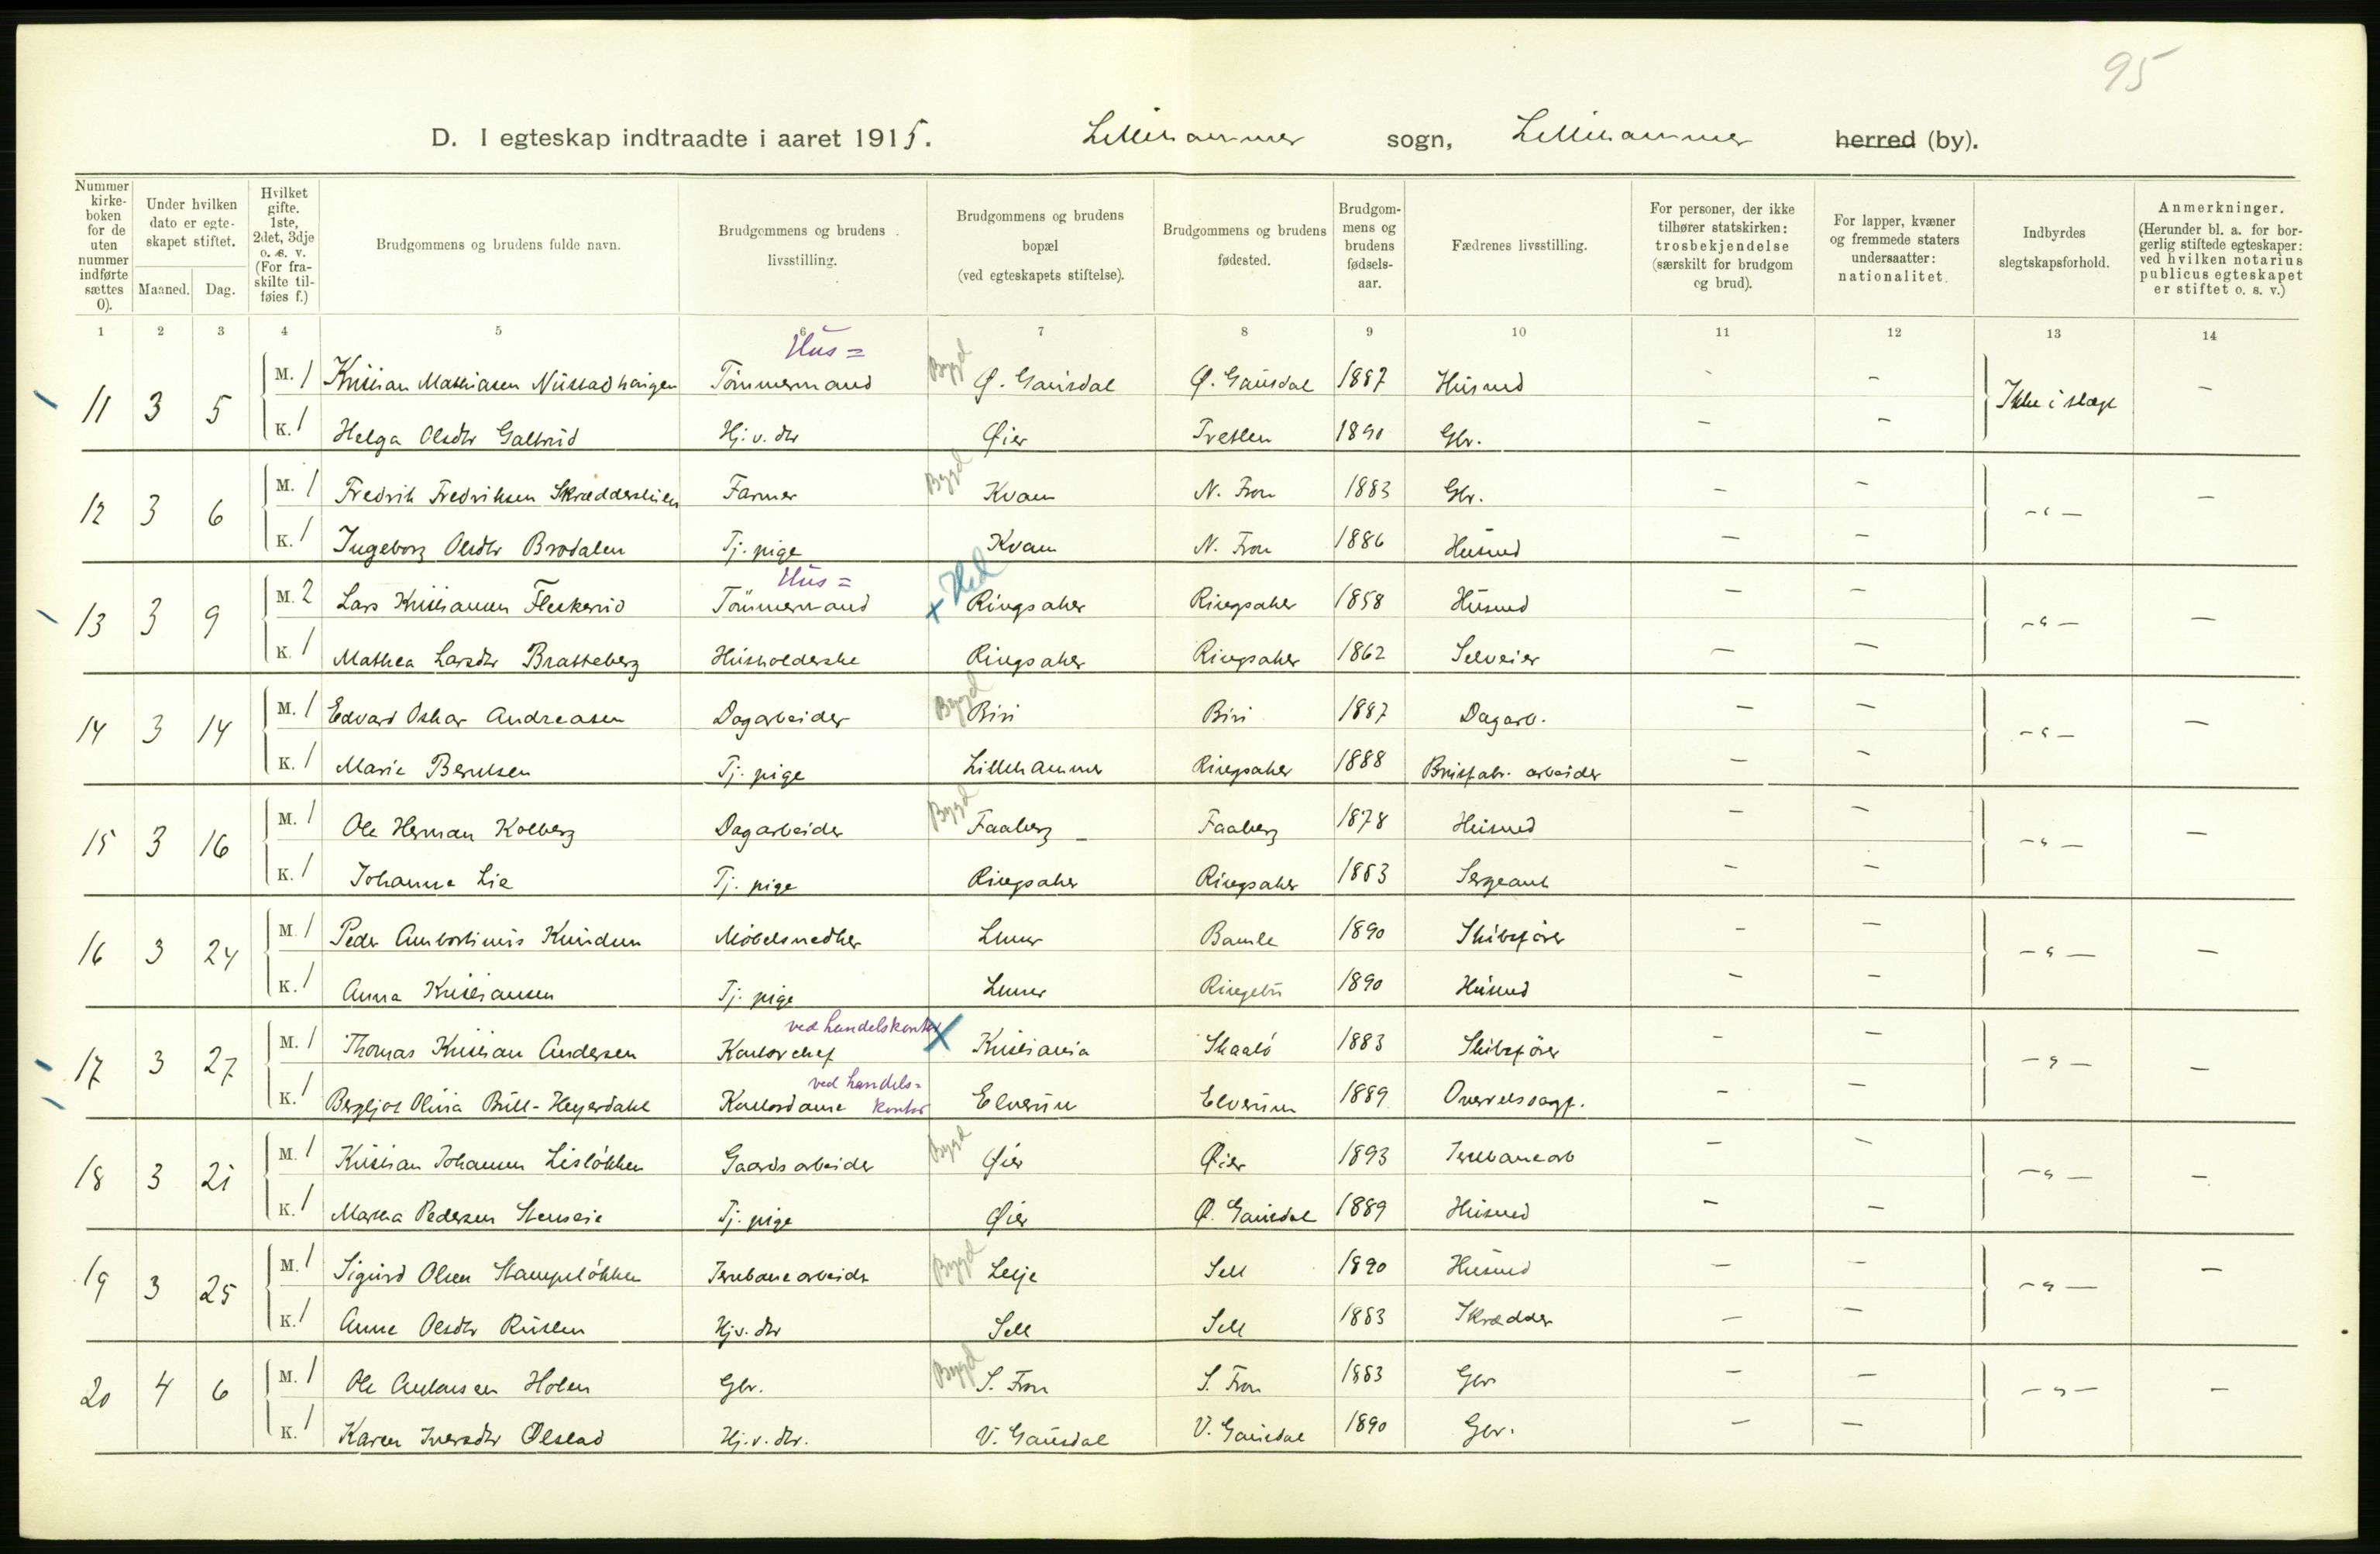 95
D. I egteskap indtraadte i aaret 1915. Lillehammer sogn, Lillehammer herred (by).
Nummer kirkeboken for de uten nummer indførte sættes 0).
Under hvilken dato er egteskapet stiftet.
Maaned. Dag.
Hvilket gifte. 1ste, 2det, 3dje o. s. v. (For fraskilte tilføies f.)
Brudgommens og brudens fulde navn.
Brudgommens og brudens livsstilling.
Brudgommens og brudens bopæl (ved egteskapets stiftelse).
Brudgommens og brudens fødested.
Brudgommens og brudens fødselsaar.
Fædrenes livsstilling.
For personer, der ikke tilhører statskirken: trosbekjendelse (særskilt for brudgom og brud).
For lapper, kvæner og fremmede staters undersaatter: nationalitet.
Indbyrdes slegtskapsforhold.
Anmerkninger. (Herunder bl. a. for borgerlig stiftede egteskaper: ved hvilken notarius publicus egteskapet er stiftet o. s. v.)
1 2 3 4 5 6 7 8 9 10 11 12 13 14
Hus =
11 3 5 M. 1 Kristian Mathiasen Nustadhaugen Tömmermand Bygd Ø. Gausdal Ø. Gausdal 1887 Husmd - - Ikke i slægt -
K. 1 Helga Olsdtr Galterud Hj. v. dtr Øier Tretten 1890 Gbr. - -
12 3 6 M. 1 Fredrik Fredriksen Skrædderstuen Farmer Bygd Kvam N. Fron 1883 Gbr. - - -"- -
K. 1 Ingeborg Olsdtr Brodalen Tj. pige Kvam N. Fron 1886 Husmd - -
Hus =
13 3 9 M. 2 Lars Kristiansen Flekkerud Tömmermand x Hed Ringsaker Ringsaker 1858 Husmd - - -"- -
K. 1 Mathea Larsdtr Bratteberg Husholderske Ringsaker Ringsaker 1862 Selveier - -
14 3 14 M. 1 Edvard Oskar Andreasen Dagarbeider Bygd Biri Biri 1887 Dagarb. - - -"- -
K. 1 Marie Berntsen Tj. pige Lillehammer Ringsaker 1888 Brusfabr. arbeider - -
15 3 16 M. 1 Ole Herman Kolberg Dagarbeider Bygd Faaberg - Faaberg 1878 Husmd - - -"- -
K. 1 Johanne Lie Tj. pige Ringsaker Ringsaker 1883 Sergeant - -
16 3 24 M. 1 Peder Knudsen Möbelsnedker Lhmr Bamle 1890 Skibsförer - - -"- -
K. 1 Anna Kristiansen Tj. pige Lhmr Ringebu 1890 Husmd - -
ved handelskontor
17 3 27 M. 1 Thomas Kristian Andersen Kontorchef x Kristiania Skaatö 1883 Skibsförer - - -"- -
ved handels=
K. 1 Bergljot Olivia Bull-Heyerdahl Kontordame kontor Elverum Elverum 1889 Overretssagf. - -
18 3 21 M. 1 Kristian Johansen Lislökken Gaardsarbeider Bygd Øier Øier 1893 Jernbanearb - - -"- -
K. 1 Martha Pedersen Stenseie Tj. pige Øier Ø. Gausdal 1889 Husmd - -
19 3 25 M. 1 Sigurd Olsen Stampelökken Jernbanearbeider Bygd Lesje Sell 1890 Husmd - - -"- -
K. 1 Anne Olsdtr Rusten Hj.v. dtr Sell Sell 1883 Skrædder - -
20 4 6 M. 1 Ole Antonsen Holen Gbr. Bygd S. Fron S. Fron 1883 Gbr - - -"- -
K. 1 Karen Iversdtr Olstad Hj. v. dtr. V. Gausdal V. Gausdal 1890 Gbr. - -